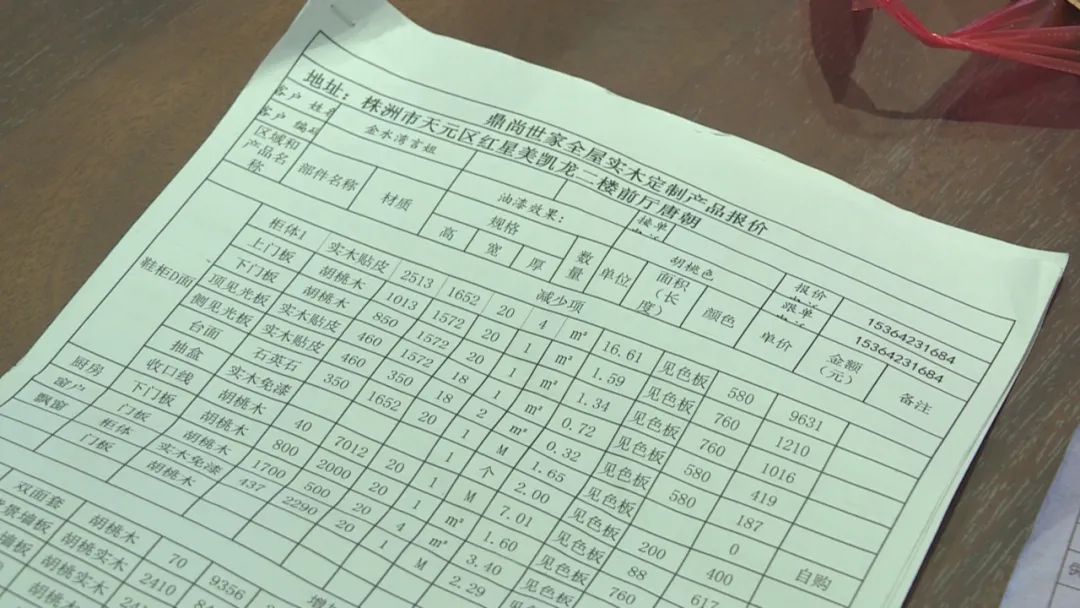 鼎尚世家全屋实木定制产品报价
地址：株洲市天元区红星美凯龙二楼前厅唐朝
客户 姓名 金水湾言姐 油漆效果： 接单 胡桃色 报价 15364231684
客户 编码 跟单 15364231684
区域和产品名称 部件名称 材质 规格 数量 单位 面积（长度） 颜色 单价 金额（元） 备注
高 宽 厚
减少项
鞋柜D面 柜体1 实木贴皮 2513 1652 20 4 m² 16.61 见色板 580 9631
上门板 胡桃木 1013 1572 20 1 m² 1.59 见色板 760 1210
下门板 胡桃木 850 1572 20 1 m² 1.34 见色板 760 1016
顶见光板 实木贴皮 460 1572 18 1 m² 0.72 见色板 580 419
侧见光板 实木贴皮 460 350 18 2 m² 0.32 见色板 580 187
台面 石英石 350 1652 20 1 M 1.65 见色板 0 自购
抽盒 实木免漆 1 个 2.00 见色板 200 400
收口线 胡桃木 40 7012 20 1 M 7.01 见色板 88 617
厨房 下门板 胡桃木 800 2000 20 1 m² 1.60 见色板 760
窗户 门板 胡桃木 1700 500 20 4 m² 3.40
飘窗 柜体 实木免漆 437 2290 20 1 M 2.29
门板 胡桃木
双面套 胡桃木 70 9356
墙板 胡桃实木 2410
墙板 胡桃实木